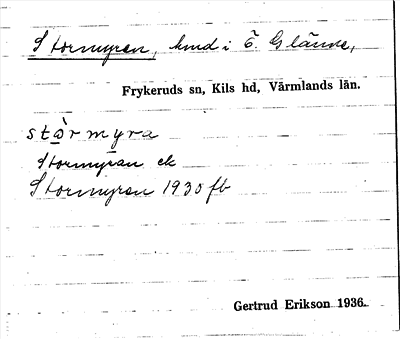 Stormyren, hmd i Ö. Glänne,
Frykeruds sn, Kils hd, Värmlands län.
stòrmyra
Stormyran ek
Stormyren 1930 fb
Gertrud Erikson 1936.